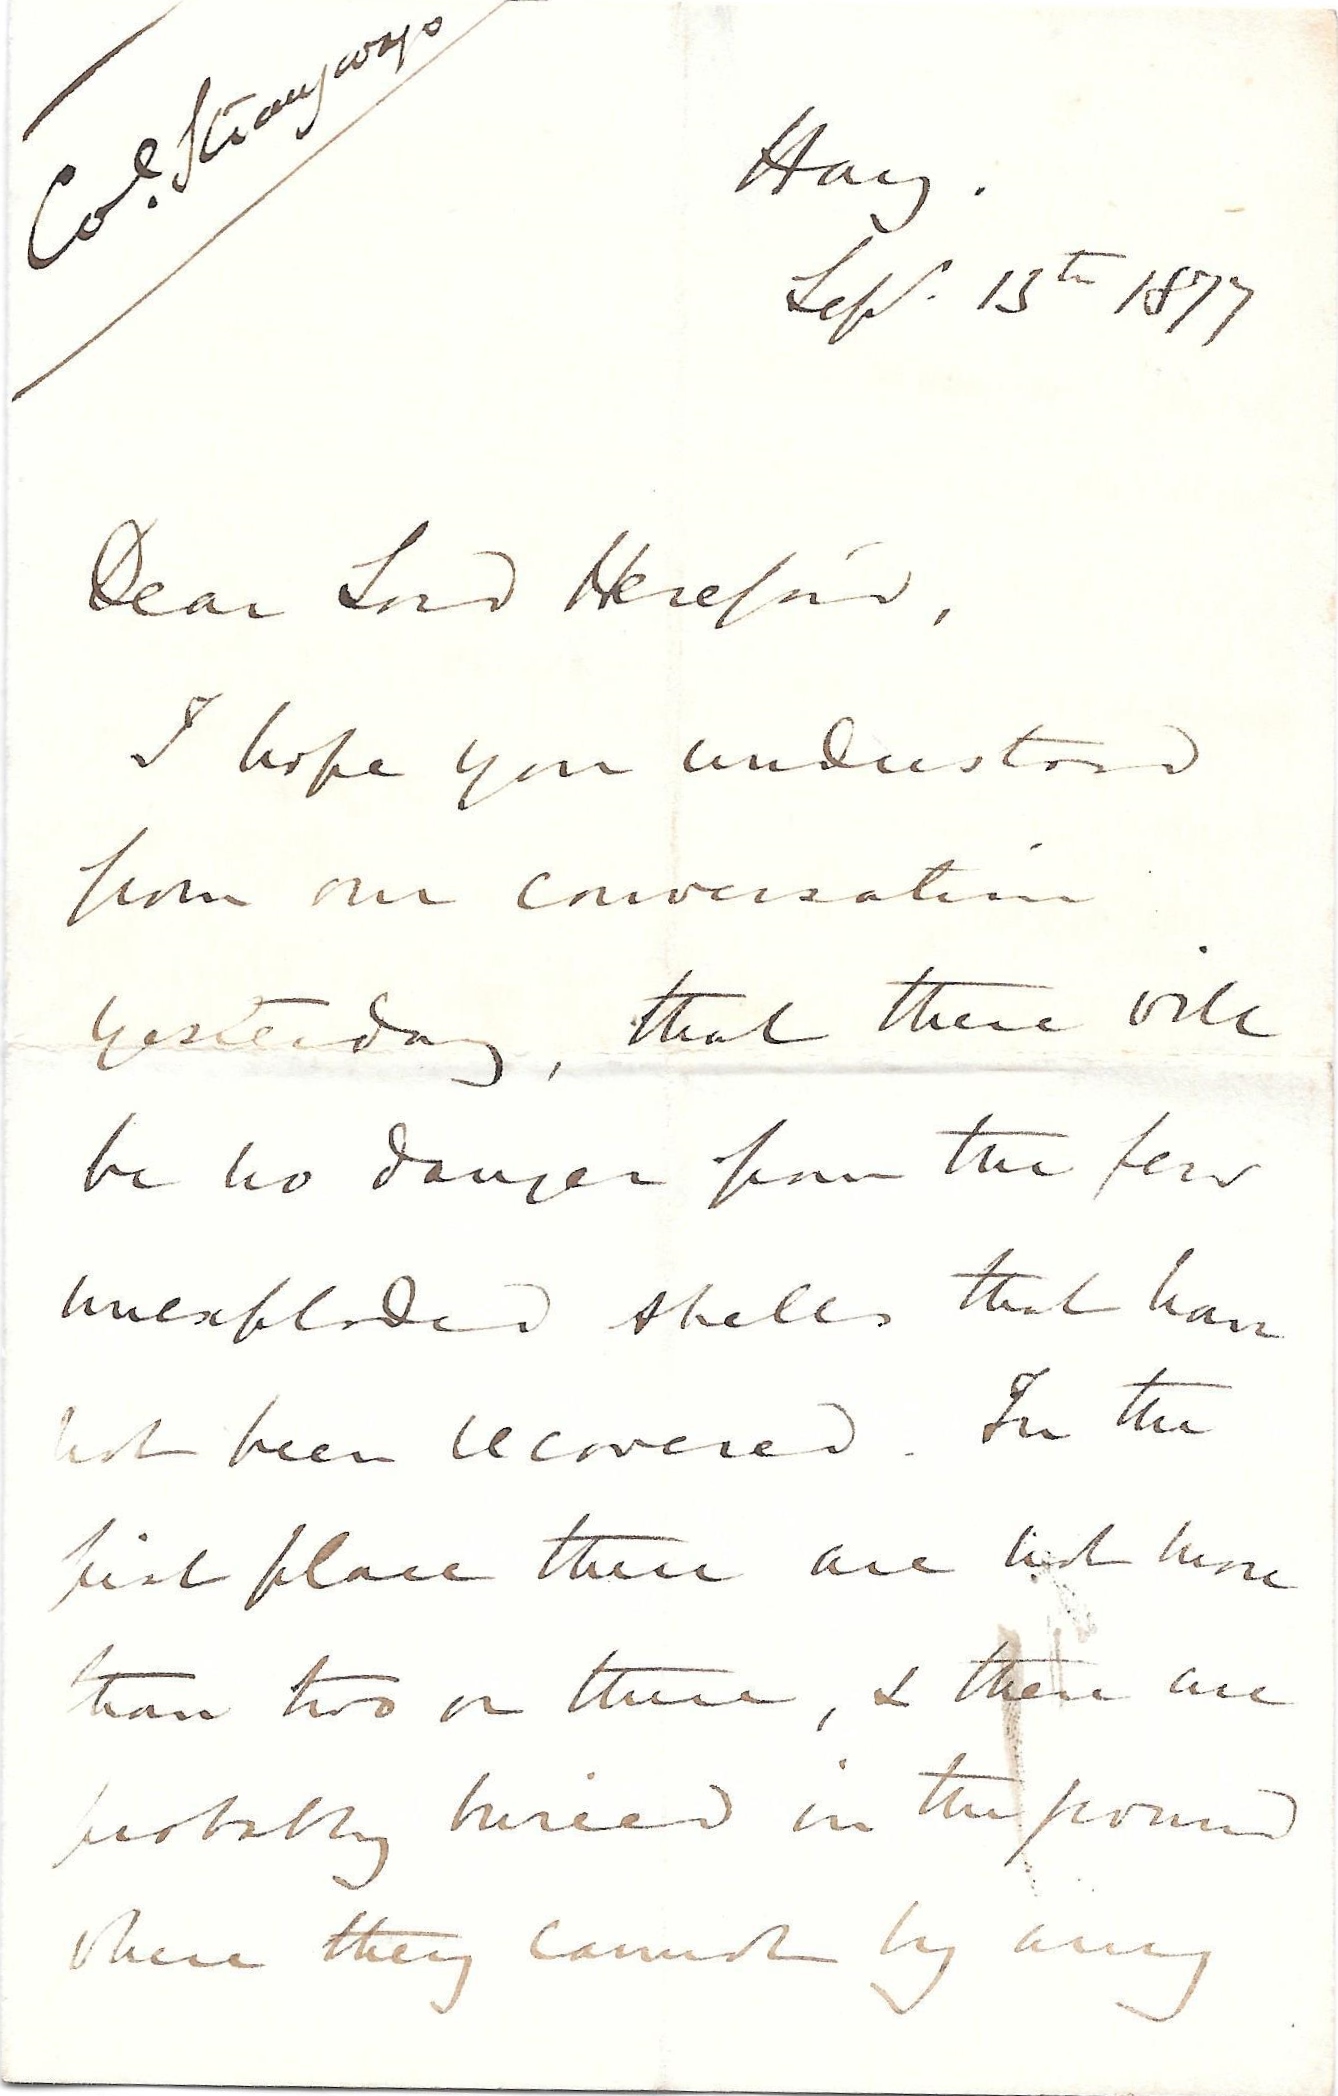 Col. Strangways
Hay.
Sept. 13th 1877
Dear Lord Hereford,
I hope you understood
from our conversation
yesterday, that there will
be no danger from the few
unexploded shells that have
not been recovered. In the
first place there are not more
than two or three, & these are
probably buried in the ground
where they cannot by any